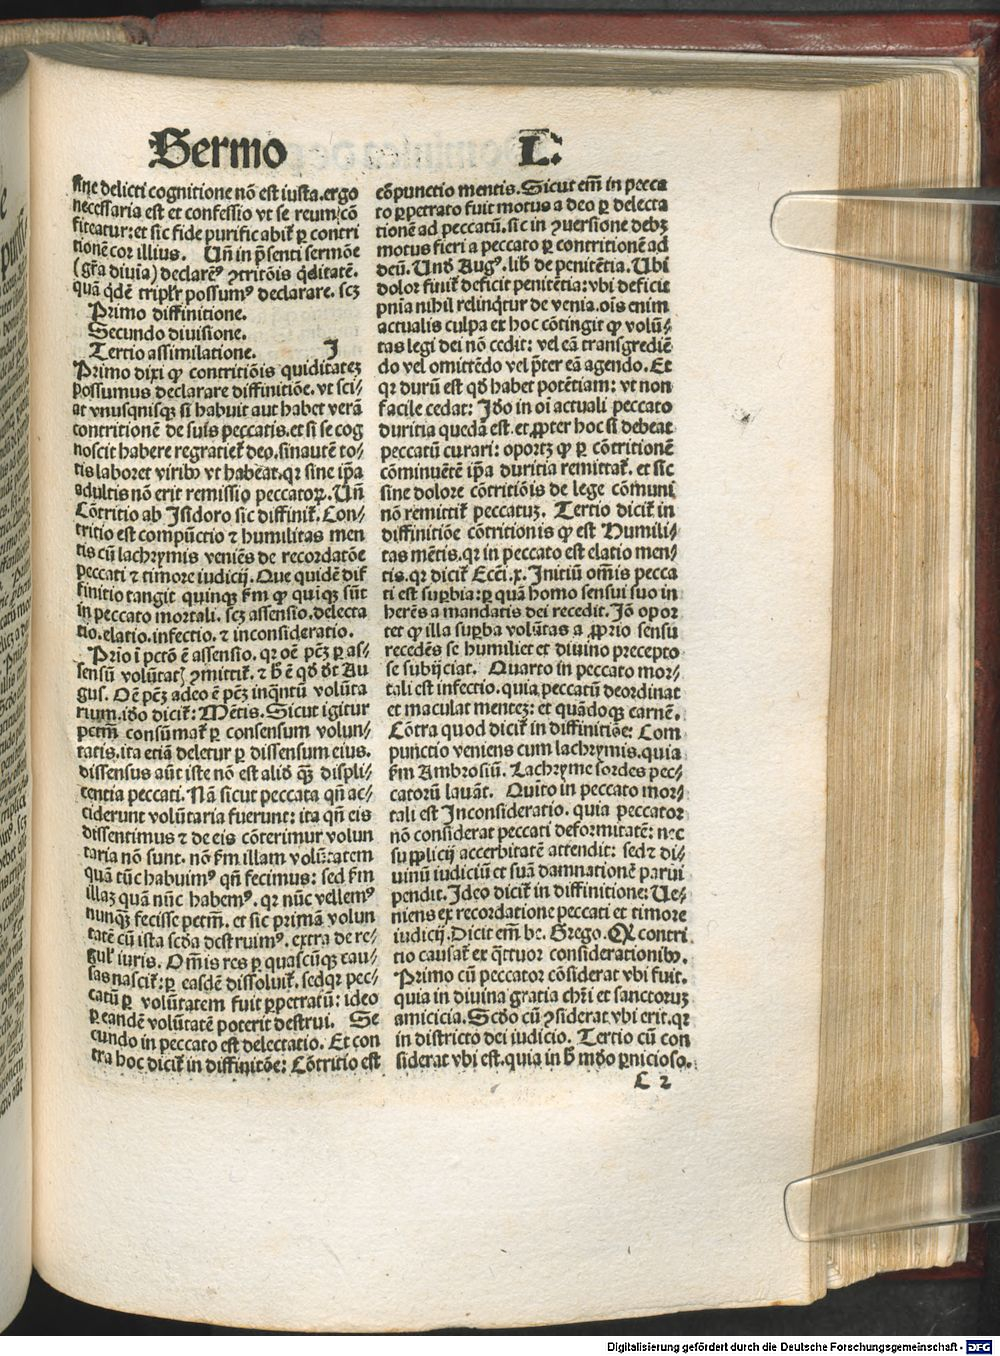 Sermo L.
sine delicti cognitione nō est iusta. ergo
necessaria est et confessio vt se reum cō
fiteatur: et sic fide purificabit᷑ ꝑ contri
tionē cor illius. Uñ in p̄senti sermōe
(gr̄a diuīa) declarem᷒ ꝯtritōis q̄ditatē.
quā q̄dē triplr̄ possum᷒ declarare. scꝫ
Primo diffinitione.
Secundo diuisione.
Tertio assimilatione. I
Primo dixi ꝙ contritiōis quiditatez
possumus declarare diffinitiōe. vt sci⸗
at vnusquisqꝫ si habuit aut habet verā
contritionē de suis peccatis. et si se cog
noscit habere regratiet᷑ deo. sinautē to⸗
tis laboret viribꝰ vt habeat. qꝛ sine ip̄a
adultis nō erit remissio peccatoꝝ. Uñ
Cōtritio ab Isidoro sic diffinit᷑. Con⸗
tritio est compūctio ⁊ humilitas men
tis cū lachrymis veniēs de recordatōe
peccati ⁊ timore iudicij. Que quidē dif
finitio tangit quinqꝫ ẜm ꝙ quiqꝫ sūt
in peccato mortali. scꝫ assensio. delecta
tio. elatio. infectio. ⁊ inconsideratio.
Prīo ī pctō ē assensio. qꝛ oē pctm̄ ꝑ as⸗
sensū volūtatꝭ ꝯmittit᷑. ⁊ h̄ ē qd̓ dt̄ Au
gus. Oē pctm̄ adeo ē pctm̄ inq̄ntū volūta
rium. ido dicit᷑: Mētis. Sicut igitur
pctm̄ consūmat᷑ ꝑ consensum volun⸗
tatis. ita etiā deletur ꝑ dissensum eius.
dissensus aūt iste nō est aliō qꝫ displi⸗
centia peccati. Nā sicut peccata qñ ac⸗
ciderunt volūtaria fuerunt: ita qñ eis
dissentimus ⁊ de eis cōterimur volun
taria nō sunt. nō ẜm illam volūtatem
quā tūc habuim᷒ qñ fecimus: sed ẜm
illaꝫ quā nūc habem᷒. qꝛ nūc vellem᷒
nunqꝫ fecisse pctm̄. et sic primā volun
tatē cū ista scd̓a destruim᷒. extra de re⸗
gul᷑ iuris. Om̄is res ꝑ quascūqꝫ cau⸗
sas nascit᷑: ꝑ easdē dissoluit᷑. sedqꝛ pec⸗
catū ꝑ voluntatem fuit ꝑpetratū: ideo
ꝑ eandē volūtatē poterit destrui. Se
cundo in peccato est delectatio. Et con
tra hoc dicit᷑ in diffinitōe: Cōtritio est
cōpunctio mentis. Sicut em̄ in pecca
to ꝑpetrato fuit motus a deo ꝑ delecta
tionē ad peccatū. sic in ꝯuersione debꝫ
motus fieri a peccato ꝑ contritionē ad
deū. Und̓ Aug᷒. lib̓ de penitētia. Ubi
dolor finit᷑ deficit penitētia: vbi deficit
pn̄ia nihil relinqtur de venia. oīs enim
actualis culpa ex hoc cōtingit ꝙ volū⸗
tas legi dei nō cedit: vel eā transgrediē
do vel omittēdo vel p̄ter eā agendo. Et
qꝛ durū est qd̓ habet potētiam: vt non
facile cedat: Ido in oī actuali peccato
duritia quedā est. et ꝓpter hoc si debeat
peccatū curari: oportꝫ ꝙ ꝑ cōtritionē
cōminuētē ip̄a duritia remittat᷑. et sic
sine dolore cōtritiōis de lege cōmuni
nō remittit᷑ peccatuꝫ. Tertio dicit᷑ in
diffinitiōe cōtritionis ꝙ est Humili⸗
tas mētis. qꝛ in peccato est elatio men⸗
tis. qꝛ dicit᷑ Ecci. x. Initiū om̄is pecca
ti est suꝑbia: ꝑ quā homo sensui suo in
herēs a mandatis dei recedit. Iō opor
tet ꝙ illa suꝑba volūtas a ꝓprio sensu
recedēs se humiliet et diuino precepto
se subijciat. Quarto in peccato mor⸗
tali est infectio. quia peccatū deordinat
et maculat menteꝫ: et quādoqꝫ carnē.
Cōtra quod dicit᷑ in diffinitiōe: Com
punctio veniens cum lachrymis. quia
ẜm Ambrosiū. Lachryme sordes pec⸗
catorū lauāt. Quīto in peccato mor⸗
tali est Inconsideratio. quia peccator
nō considerat peccati deformitatē: nec
supplicij accerbitatē attendit: sed ⁊ di⸗
uinū iudiciū et suā damnationē parui
pendit. Ideo dicit᷑ in diffinitione: Ue⸗
niens ex recordatione peccati et timore
iudicij. Dicit em̄ be. Grego. Qꝫ contri
tio causat᷑ ex q̄ttuor considerationibꝰ.
Primo cū peccator cōsiderat vbi fuit.
quia in diuina gratia chr̄i et sanctoruꝫ
amicicia. Scd̓o cū ꝯsiderat vbi erit. qꝛ
in districto dei iudicio. Tertio cū con
siderat vbi est. quia in h̄ mūdo ꝑnicioso.
C 2
Digitalisierung gefördert durch die Deutsche Forschungsgemeinschaft - DFG